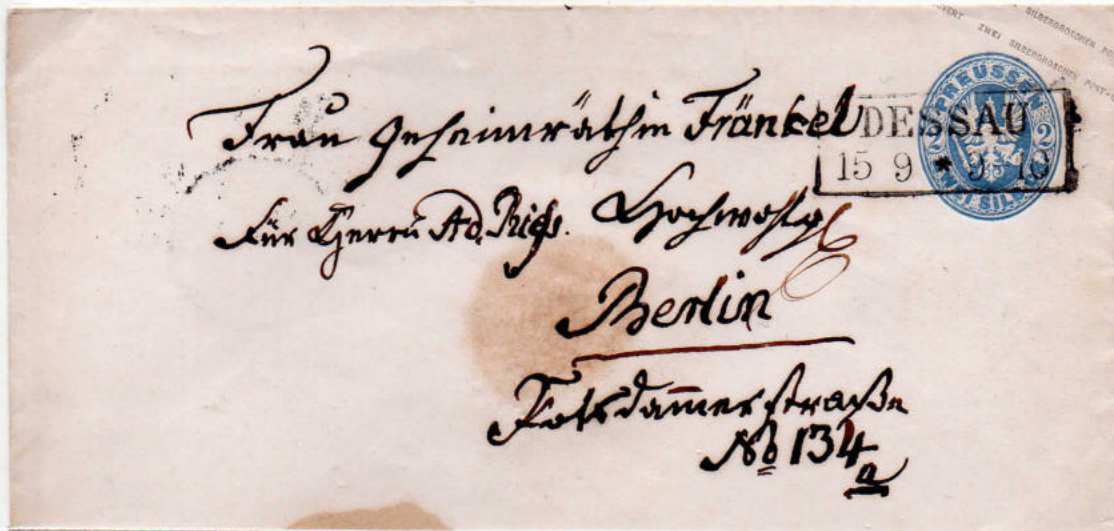 SILBERGROSCHEN
ZWEI SILBERGROSCHEN POST-
PREUSSEN
2 2
DESSAU
15 9 * 9-10
Frau Geheimräthin Fränkel
Für Herrn Ad. Hochwohlg
Berlin
Potsdammerstraße
No 134
a